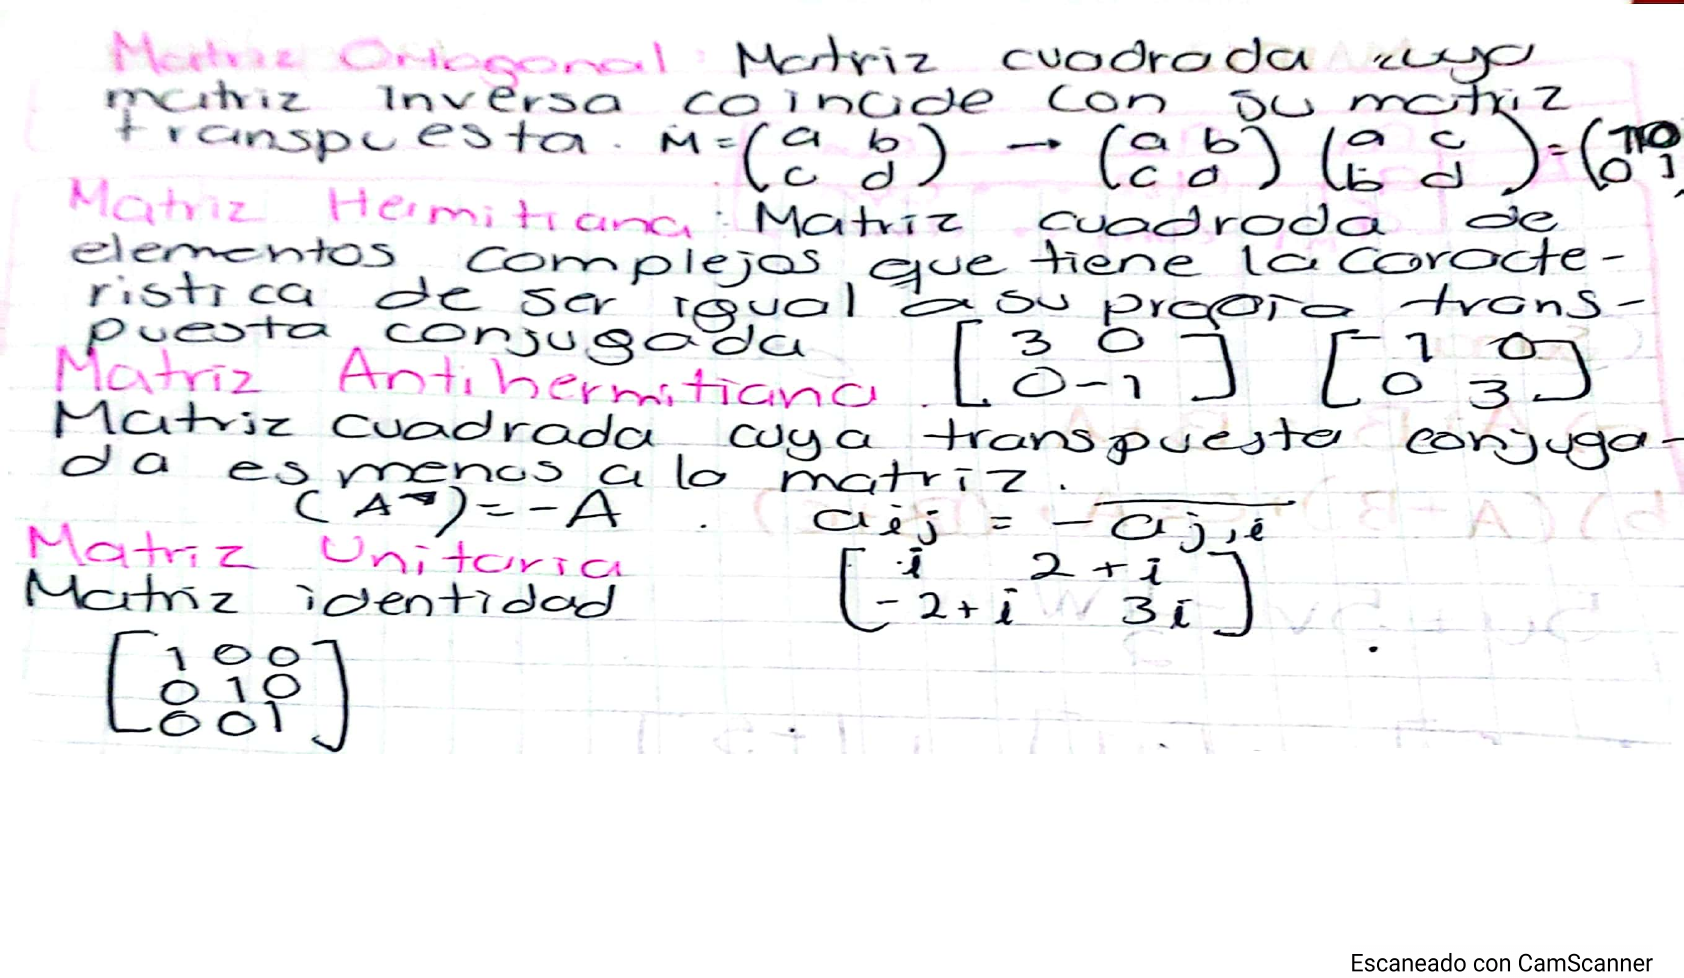 Matriz Ortogonal: Matriz cuadrada cuya
matriz inversa coincide con su matriz
transpuesta. M=(a b
c d) → (a b
c d) (a c
b d)=(1 0
0 1)
Matriz Hermitiana: Matriz cuadrada de
elementos complejos que tiene la caracte-
ristica de ser igual a su propia trans-
puesta conjugada [3 0
0 -1] [-1 0
0 3]
Matriz Antihermitiana.
Matriz cuadrada cuya transpuesta conjuga-
da es menos a la matriz.
(A*)=-A . aij = -aj,i
Matriz Unitaria
Matriz identidad
[i 2+i
-2+i 3i]
[1 0 0
0 1 0
0 0 1]
Escaneado con CamScanner